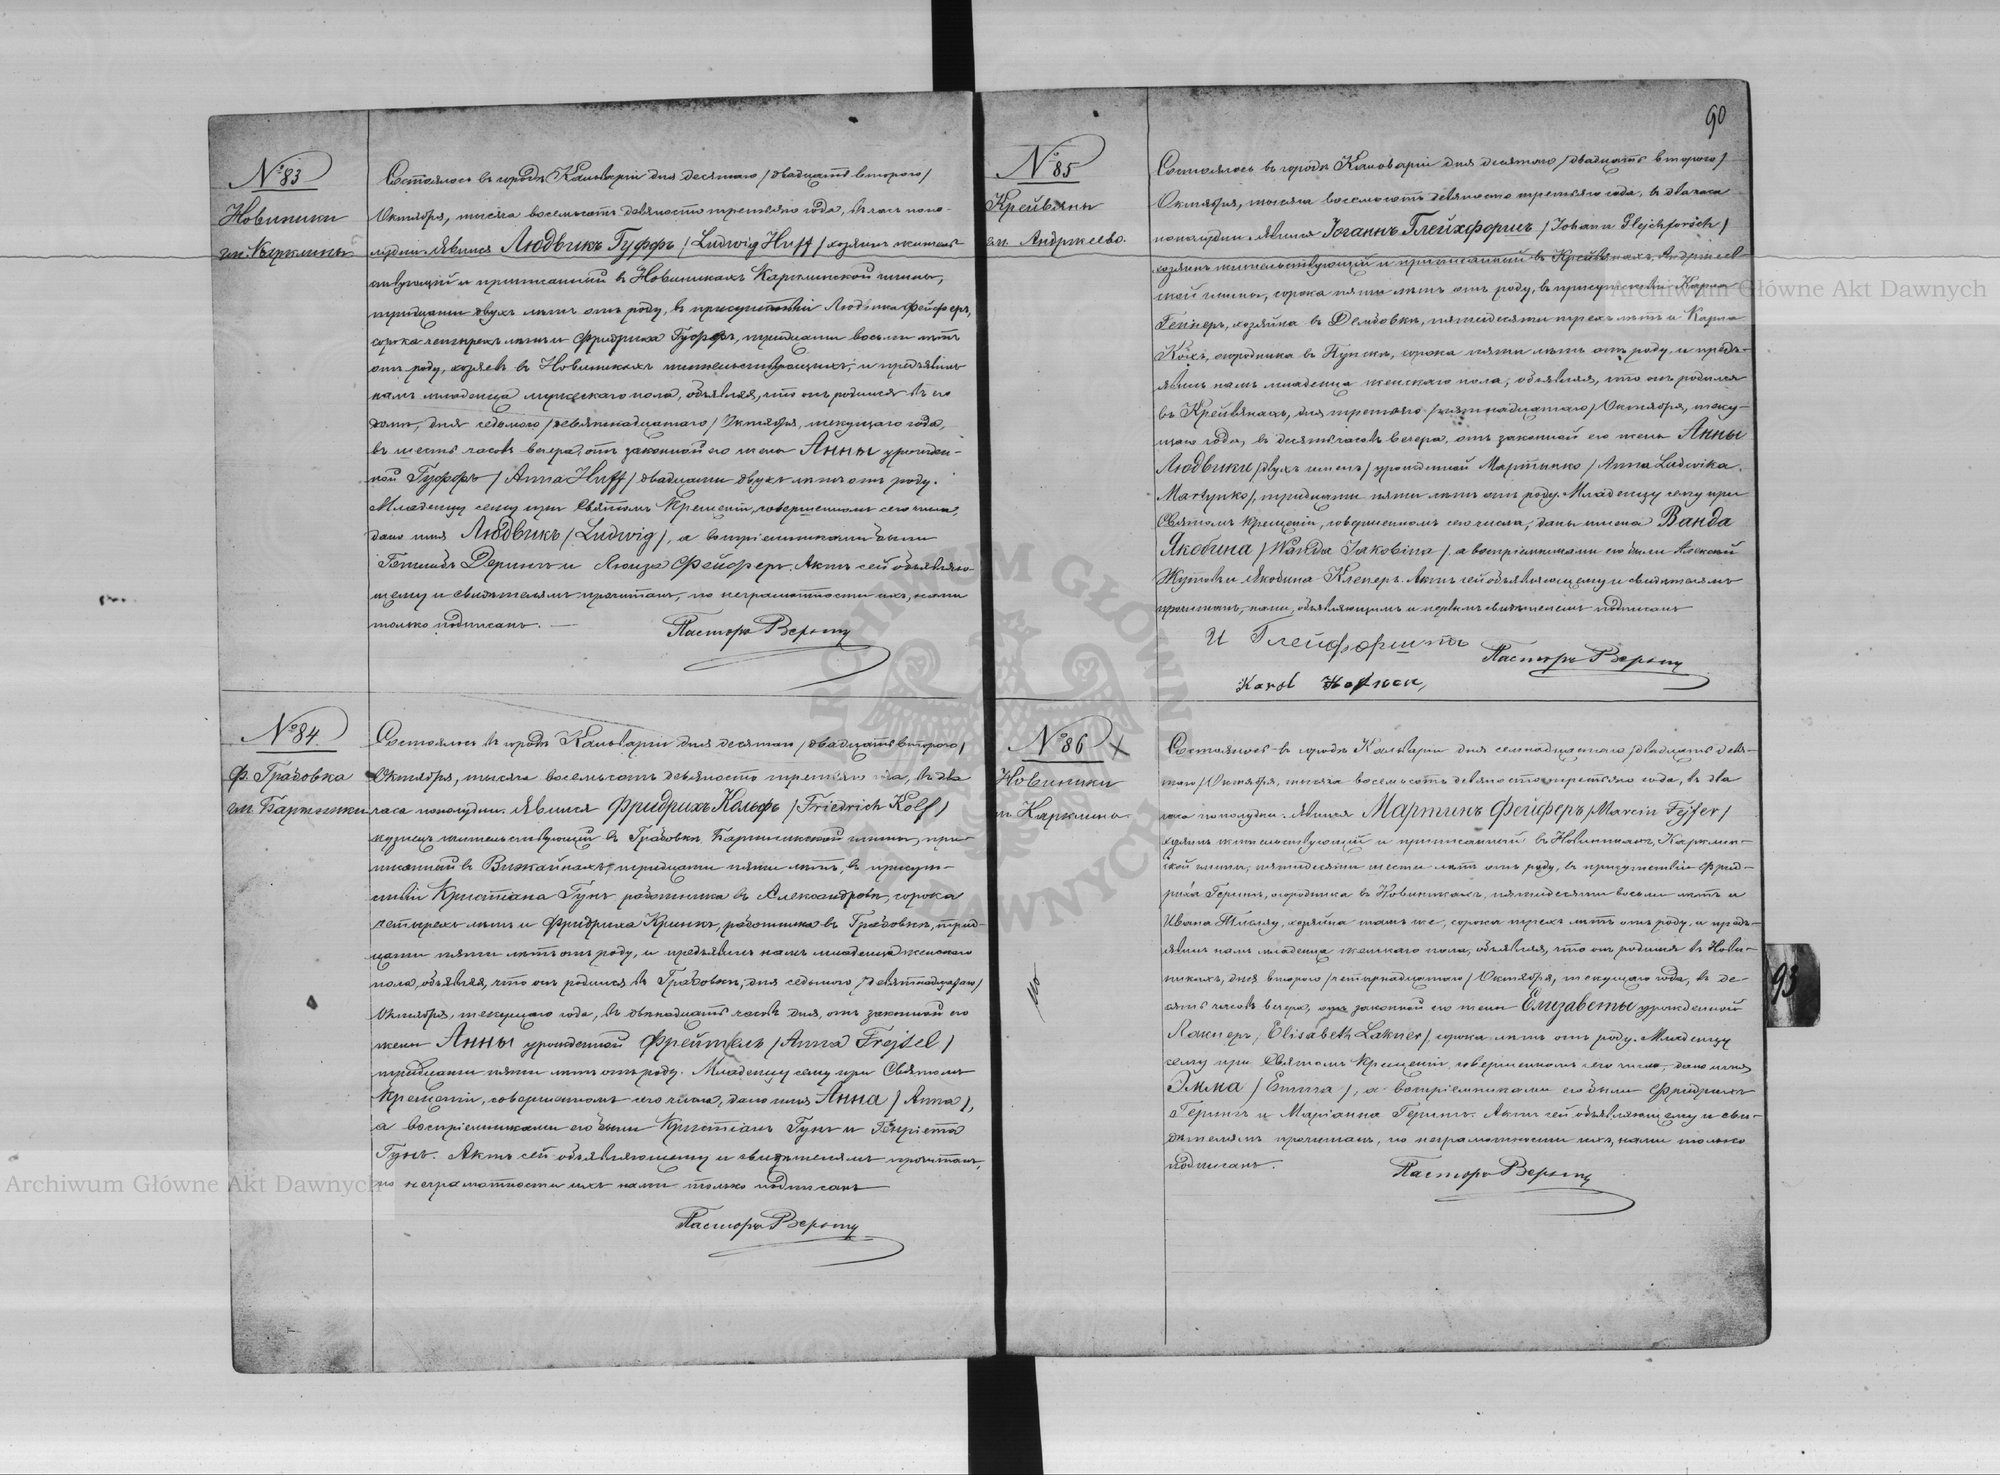 № 83
Новиники
гм. Карклины
Состоялось въ городѣ Кальваріи дня десятаго /двадцать втораго/
Октября, тысяча восемьсотъ девяносто третьяго года, въ часъ попо-
лудни. Явился Людвикъ Гуффъ / Ludwig Huff / хозяинъ житель-
ствующій и приписанный въ Новиникахъ Карклинской гмины,
тридцати двухъ лѣтъ отъ роду, въ присутствіи Людвика Фейферъ,
сорока четырехъ лѣтъ и Фридриха Гуффъ, тридцати восьми лѣтъ
отъ роду, хозяевъ въ Новиникахъ жительствующихъ, и предъявилъ
намъ младенца мужескаго пола, объявляя, что онъ родился въ его
домѣ, дня седьмого /девятнадцатаго/ Октября, текущаго года,
въ шесть часовъ вечера, отъ законной его жены Анны урожден-
ной Гуффъ / Anna Huff / двадцати двухъ лѣтъ отъ роду.
Младенцу сему при Святомъ Крещеніи, совершенномъ сего числа,
дано имя Людвикъ / Ludwig /, а воспріемниками были
Готлибъ Дерингъ и Луиза Фейферъ. Актъ сей объявляю-
щему и свидѣтелямъ прочитанъ, по неграмотности ихъ, нами
только подписанъ. —
Пасторъ
№ 84
ф. Грабовка
гм. Бартники
Состоялось въ городѣ Кальваріи дня десятаго /двадцать втораго/
Октября, тысяча восемьсотъ девяносто третьяго года, въ два
часа пополудни. Явился Фридрихъ Кольфъ / Friedrich Kolf /
кузнецъ жительствующій въ Грабовкѣ Бартникской гмины, при-
писанный въ Вижайнахъ, тридцати пяти лѣтъ, въ присут-
ствіи Кристіана Гунъ работника въ Александровѣ, сорока
четырехъ лѣтъ и Фридриха Кринкъ, работника въ Грабовкѣ, трид-
цати пяти лѣтъ отъ роду, и предъявилъ намъ младенца женскаго
пола, объявляя, что онъ родился въ Грабовкѣ, дня седьмого /девятнадцатаго/
Октября, текущаго года, въ двѣнадцать часовъ дня, отъ законной его
жены Анны урожденной Фрейтель / Anna Frejtel /
тридцати пяти лѣтъ отъ роду. Младенцу сему при Святомъ
Крещеніи, совершенномъ сего числа, дано имя Анна / Anna /,
а воспріемниками его были Кристіанъ Гунъ и Генріета
Гунъ. Актъ сей объявляющему и свидѣтелямъ прочитанъ,
по неграмотности ихъ нами только подписанъ
Пасторъ
90
№ 85
Крейвяны
гм. Андржеево.
Состоялось въ городѣ Кальваріи дня десятаго /двадцать втораго/
Октября, тысяча восемьсотъ девяносто третьяго года, въ два часа
пополудни. Явился Іоганнъ Глейхфоршъ / Johann Glejchforsch /
хозяинъ жительствующій и приписанный въ Крейвянахъ, Андржеев-
ской гмины, сорока пяти лѣтъ отъ роду, въ присутствіи Карла
хозяина въ Дембовкѣ, пятидесяти трехъ лѣтъ и Карла
Кохъ, огородника въ Пунскѣ, сорока пяти лѣтъ отъ роду, и предъ-
явилъ намъ младенца женскаго пола, объявляя, что онъ родился
въ Крейвянахъ, дня третьяго /пятнадцатаго/ Октября, теку-
щаго года, въ десять часовъ вечера, отъ законной его жены Анны
Людвики /двухъ именъ/ урожденной Мартынко / Anna Ludwika
Martynko/, тридцати пяти лѣтъ отъ роду. Младенцу сему при
Святомъ Крещеніи, совершенномъ сего числа, даны имена Ванда
Якобина / Wanda Jakobina /, а воспріемниками его были Алексѣй
и Якобина Клеперъ. Актъ сей объявляющему и свидѣтелямъ
прочитанъ, нами, объявляющимъ и первымъ свидѣтелемъ подписанъ
И Глейфорштъ
Пасторъ
Karol
№ 86 X
Новиники
гм. Карклины
Состоялось въ городѣ Кальваріи дня семнадцатаго /двадцать девя-
таго/ Октября, тысяча восемьсотъ девяносто третьяго года, въ два
часа пополудни. Явился Мартинъ Фейферъ / Marcin Fejfer /
хозяинъ жительствующій и приписанный въ Новиникахъ, Карклин-
ской гмины, пятидесяти шести лѣтъ отъ роду, въ присутствіи Фрид-
риха Герингъ, огородника въ Новиникахъ, пятидесяти восьми лѣтъ и
Ивана хозяина тамъ же, сорока трехъ лѣтъ отъ роду, и предъ-
явилъ намъ младенца женскаго пола, объявляя, что онъ родился въ Нови-
никахъ, дня втораго /четырнадцатаго/ Октября, текущаго года, въ де-
сять часовъ вечера, отъ законной его жены Елизаветы урожденной
Лакнеръ / Elisabeth Lakner/, сорока лѣтъ отъ роду. Младенцу
сему при Святомъ Крещеніи, совершенномъ сего числа, дано имя
Эмма / Emma /, а воспріемниками его были Фридрихъ
Герингъ и Маріанна Герингъ. Актъ сей объявляющему и сви-
дѣтелямъ прочитанъ, по неграмотности ихъ, нами только
подписанъ.
Пасторъ
93
Archiwum Główne Akt Dawnych
Archiwum Główne Akt Dawnych
ARCHIWUM GŁÓWNE AKT DAWNYCH